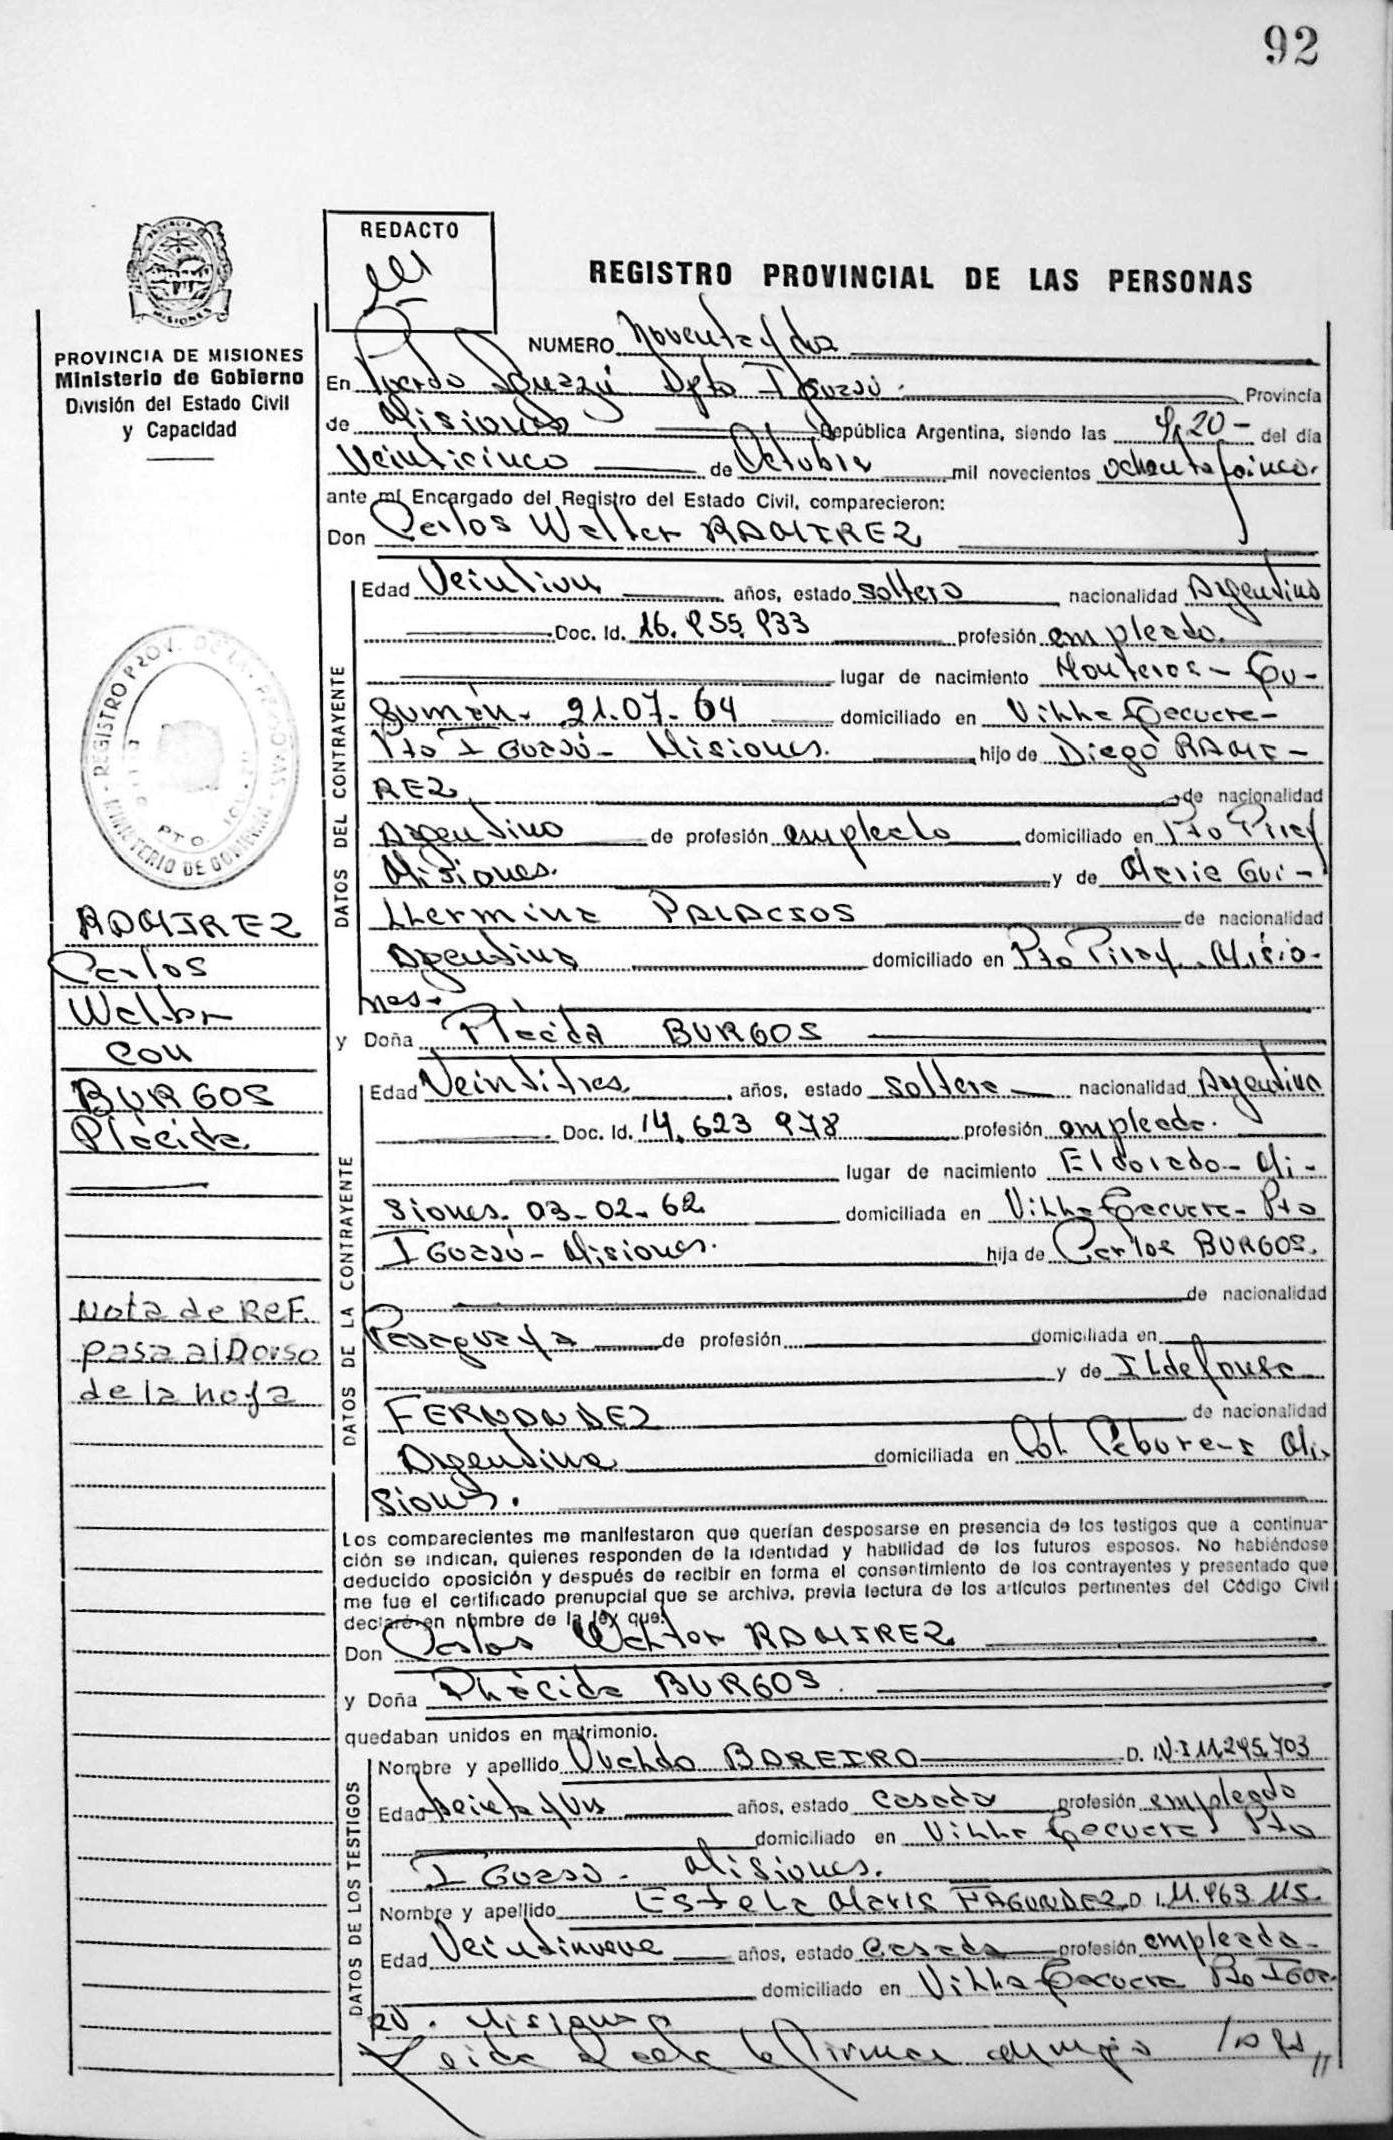 92
REDACTO
REGISTRO PROVINCIAL DE LAS PERSONAS
PROVINCIA DE MISIONES
Ministerio de Gobierno
División del Estado Civil
y Capacidad
NUMERO Noventa y dos
En Puerto Iguazú Dpto Iguazú. Provincia
de Misiones República Argentina, siendo las 9,20 - del día
Veinticinco de Octubre mil novecientos ochenta y cinco.
ante mí Encargado del Registro del Estado Civil, comparecieron:
Don Carlos Walter RAMIREZ
DATOS DEL CONTRAYENTE
Edad Veintiun años, estado soltero nacionalidad Argentino
Doc. Id. 16.955.933 profesión empleado.
lugar de nacimiento Monteros - Tu-
cumán. 21.07.64 domiciliado en Villa Tacuara-
Pto Iguazú - Misiones. hijo de Diego RAMI-
REZ de nacionalidad
Argentino de profesión empleado domiciliado en Pto Piray
Misiones. y de Maria Gui-
llermina PALACIOS de nacionalidad
Argentina domiciliado en Pto Piray. Misio-
nes.
y Doña Plácida BURGOS
DATOS DE LA CONTRAYENTE
Edad Veintitres. años, estado soltera nacionalidad Argentina
Doc. Id. 14.623 978 profesión empleada.
lugar de nacimiento Eldorado - Mi-
siones. 03-02-62 domiciliada en Villa Tacuara - Pto
Iguazú - Misiones. hija de Carlos BURGOS.
de nacionalidad
Paraguaya de profesión domiciliada en
y de Ildefonsa
FERNANDEZ de nacionalidad
Argentina domiciliada en Col. Mi-
siones.
Los comparecientes me manifestaron que querían desposarse en presencia de los testigos que a continua-
ción se indican, quienes responden de la identidad y habilidad de los futuros esposos. No habiéndose
deducido oposición y después de recibir en forma el consentimiento de los contrayentes y presentado que
me fue el certificado prenupcial que se archiva, previa lectura de los artículos pertinentes del Código Civil
declaré en nombre de la ley que:
Don Carlos Walter RAMIREZ
y Doña Plácida BURGOS
quedaban unidos en matrimonio.
DATOS DE LOS TESTIGOS
Nombre y apellido Uvaldo BAREIRO D.N.I 11,245,703
Edad treinta y un años, estado casado profesión empleado
domiciliado en Villa Tacuara Pto
Iguazú - Misiones.
Nombre y apellido Estela Maris FAGUNDEZ D I. 11.463 115
Edad Veintinueve años, estado casada profesión empleada-
domiciliado en Villa Tacuara Pto Igua-
zú. Misiones
Leida el acta la firman
RAMIREZ
Carlos
Walter
con
BURGOS
Plácida
Nota de Ref.
pasa al Dorso
de la hoja
REGISTRO PROV. DE LAS PERSONAS
MINISTERIO DE GOBIERNO
PTO.